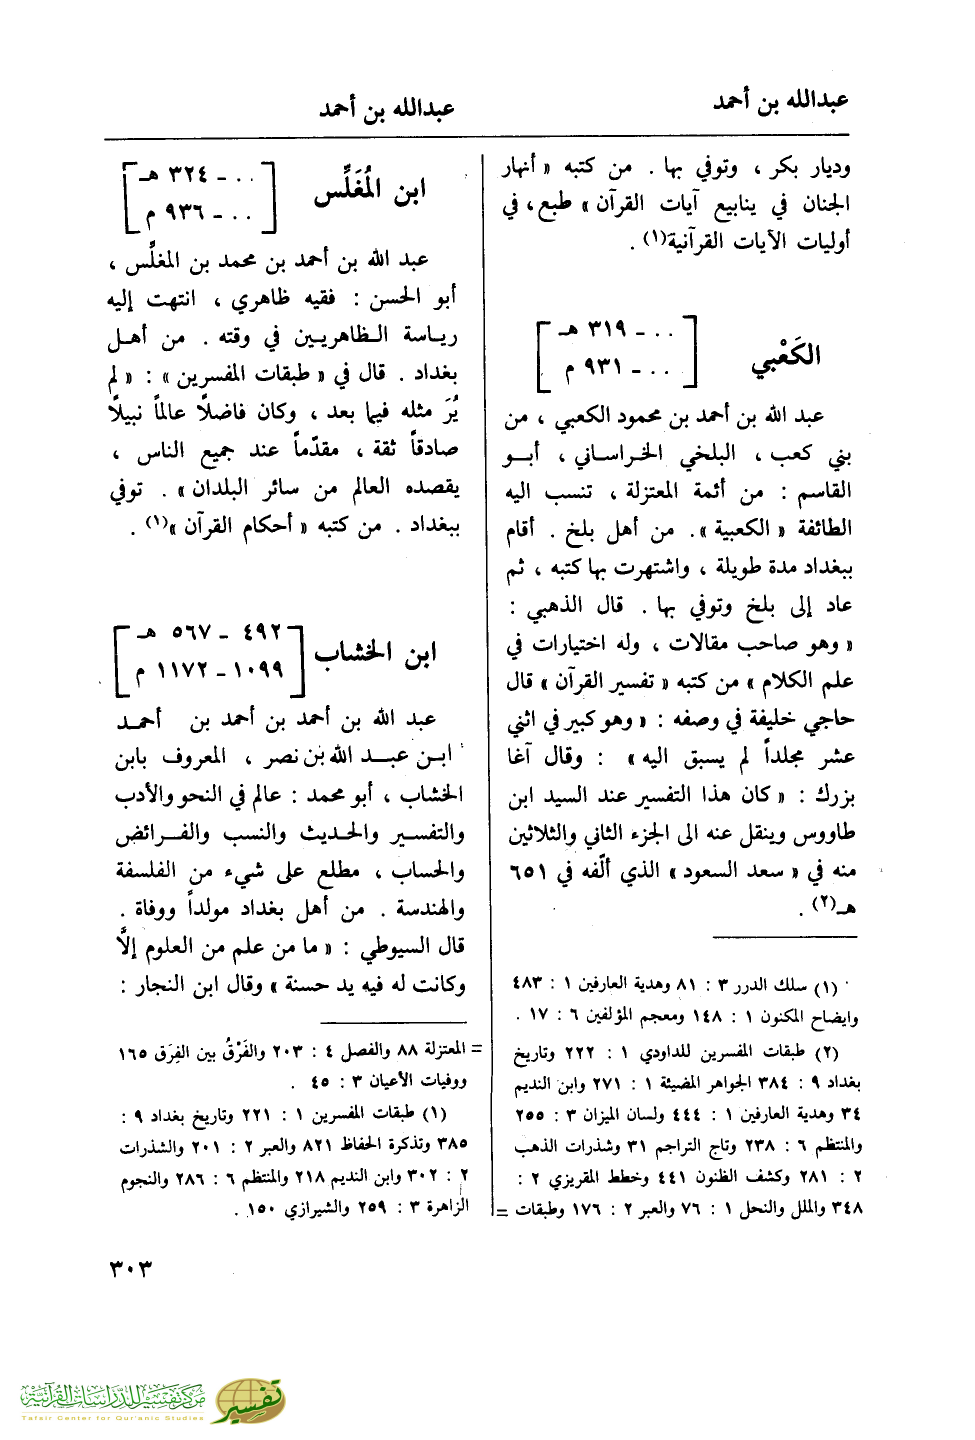 عبدالله بن أحمد
عبدالله بن أحمد
وديار بكر ، وتوفي بها . من كتبه « أنهار
الجنان في ينابيع آيات القرآن » طبع، في
أوليات الآيات القرآنية(١) .
الكَعْبي
. . ـ ٣١٩ هـ
. . ـ ٩٣١ م
عبد الله بن أحمد بن محمود الكعبي ، من
بني كعب ، البلخي الخراساني ، أبو
القاسم : من أئمة المعتزلة ، تنسب اليه
الطائفة « الكعبية ». من أهل بلخ . أقام
ببغداد مدة طويلة ، واشتهرت بها كتبه ، ثم
عاد إلى بلخ وتوفي بها . قال الذهبي :
« وهو صاحب مقالات ، وله اختيارات في
علم الكلام » من كتبه « تفسير القرآن » قال
حاجي خليفة في وصفه : « وهو كبير في اثني
عشر مجلداً لم يسبق اليه » : وقال آغا
بزرك : « كان هذا التفسير عند السيد ابن
طاووس وينقل عنه الى الجزء الثاني والثلاثين
منه في « سعد السعود » الذي ألّفه في ٦٥١
هـ(٢) .
(١) سلك الدرر ٣ : ٨١ وهدية العارفين ١ : ٤٨٣
وايضاح المكنون ١ : ١٤٨ ومعجم المؤلفين ٦ : ١٧ .
(٢) طبقات المفسرين للداودي ١ : ٢٢٢ وتاريخ
بغداد ٩ : ٣٨٤ الجواهر المضيئة ١ : ٢٧١ وابن النديم
٣٤ وهدية العارفين ١ : ٤٤٤ ولسان الميزان ٣ : ٢٥٥
والمنتظم ٦ : ٢٣٨ وتاج التراجم ٣١ وشذرات الذهب
٢ : ٢٨١ وكشف الظنون ٤٤١ وخطط المقريزي ٢ :
٣٤٨ والملل والنحل ١ : ٧٦ والعبر ٢ : ١٧٦ وطبقات =
ابن المُغَلِّس
. . ـ ٣٢٤ هـ
. . ـ ٩٣٦ م
عبد الله بن أحمد بن محمد بن المغلِّس ،
أبو الحسن : فقيه ظاهري ، انتهت إليه
رياسة الظاهريين في وقته . من أهل
بغداد . قال في « طبقات المفسرين » : « لم
يُرَ مثله فيما بعد ، وكان فاضلاً عالماً نبيلاً
صادقاً ثقة ، مقدّماً عند جميع الناس ،
يقصده العالم من سائر البلدان » . توفي
ببغداد . من كتبه « أحكام القرآن »(١) .
ابن الخشاب
٤٩٢ ـ ٥٦٧ هـ
١٠٩٩ ـ ١١٧٢ م
عبد الله بن أحمد بن أحمد بن أحمد
ابن عبد الله بن نصر ، المعروف بابن
الخشاب ، أبو محمد : عالم في النحو والأدب
والتفسير والحديث والنسب والفرائض
والحساب ، مطلع على شيء من الفلسفة
والهندسة . من أهل بغداد مولداً ووفاة .
قال السيوطي : « ما من علم من العلوم إلَّا
وكانت له فيه يد حسنة » وقال ابن النجار :
= المعتزلة ٨٨ والفصل ٤ : ٢٠٣ والفَرْقُ بين الفِرَق ١٦٥
ووفيات الأعيان ٣ : ٤٥ .
(١) طبقات المفسرين ١ : ٢٢١ وتاريخ بغداد ٩ :
٣٨٥ وتذكرة الحفاظ ٨٢١ والعبر ٢ : ٢٠١ والشذرات
٢ : ٣٠٢ وابن النديم ٢١٨ والمنتظم ٦ : ٢٨٦ والنجوم
الزاهرة ٣ : ٢٥٩ والشيرازي ١٥٠ .
٣٠٣
مركز تفسير للدراسات القرآنية
Tafsir Center for Qur'anic Studies
تفسير